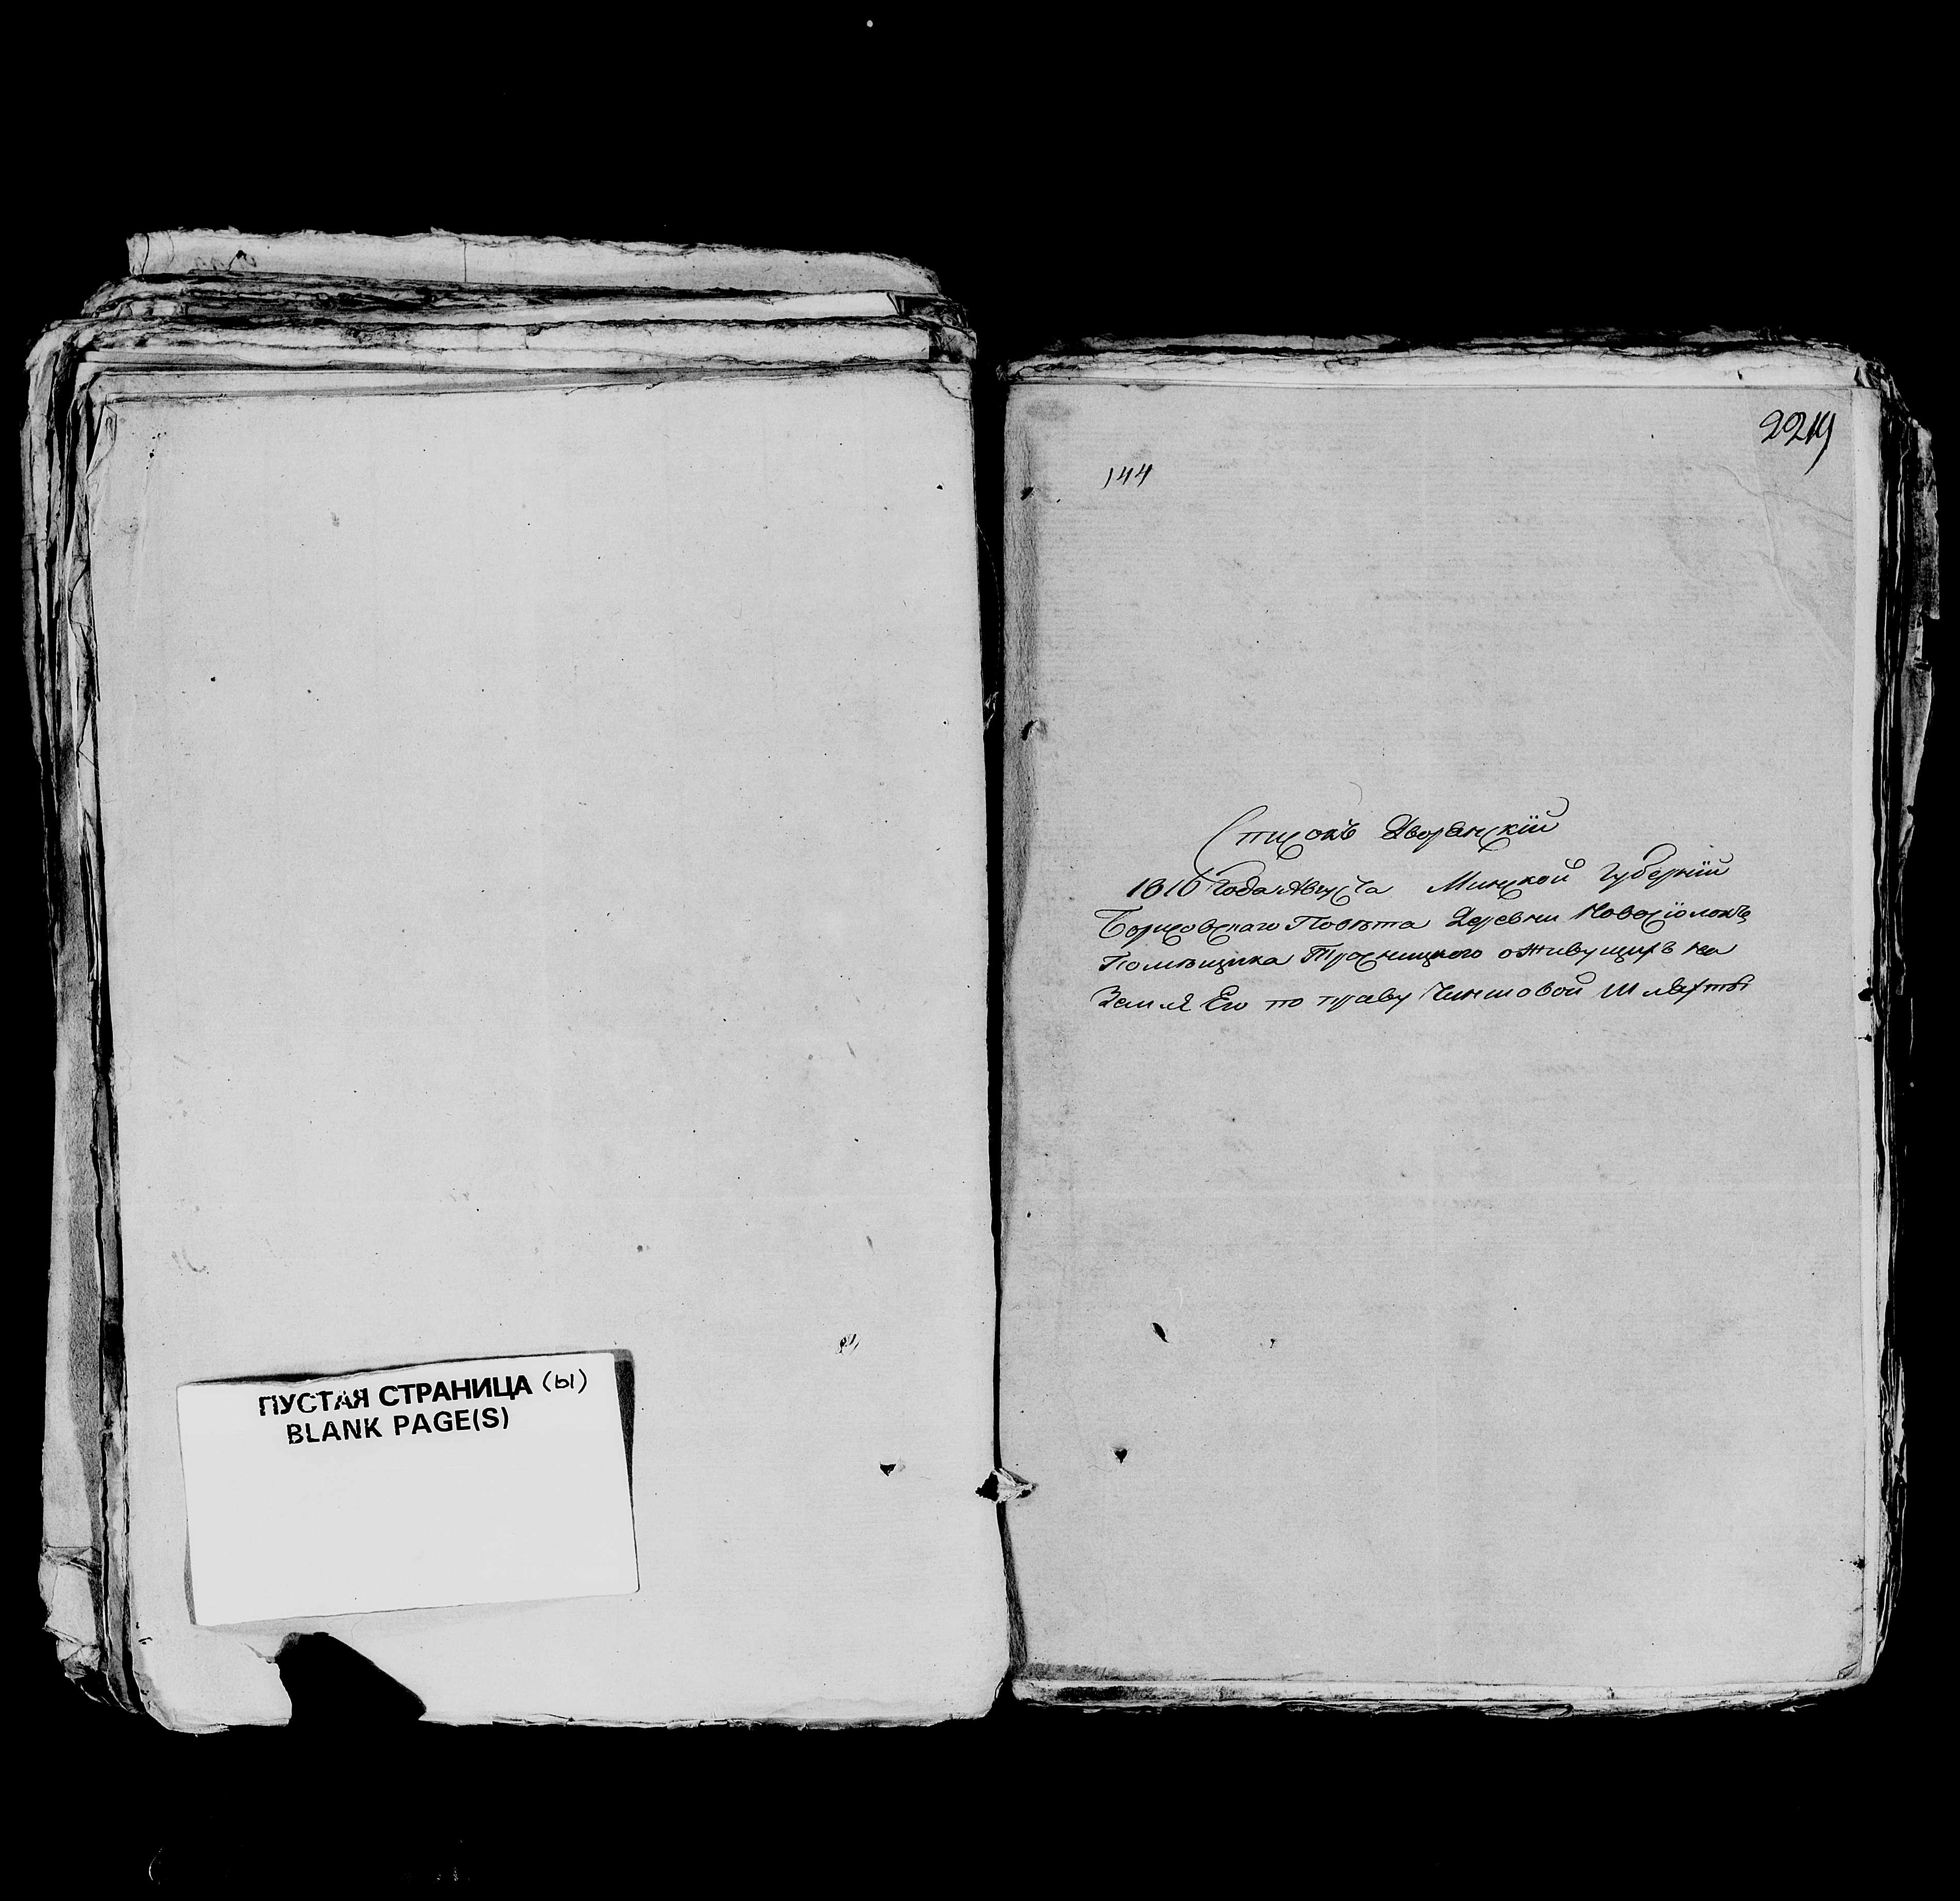 ПУСТАЯ СТРАНИЦА (Ы)
BLANK PAGE(S)
144
Списокъ Дворянскій
1816 Года Августа Минской Губерніи
Борисовскаго Повѣта Деревни Новосіолокъ
Помѣщика Троеницкого оживущихъ на
Земля Ею по праву Чиншовой Шляхты